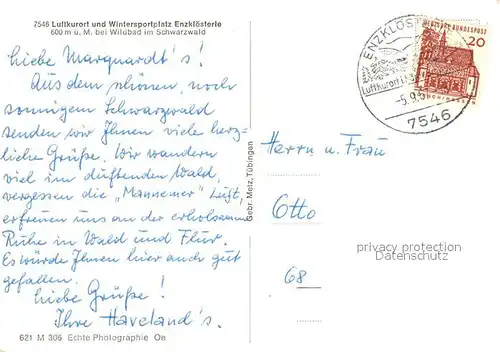 7546 Luftkurort und Wintersportplatz Enzklösterle
600 m ü. M. bei Wildbad im Schwarzwald
Liebe Marquardt's!
Aus dem schönen, noch
sonnigem Schwarzwald
senden wir Ihnen viele herz-
liche Grüße. Wir wandern
viel im duftenden Wald,
vergessen die „Mannemer" Luft,
erfreuen uns an der erholsamen
Ruhe in Wald und Flur.
Es würde Ihnen hier auch gut
gefallen.
Liebe Grüße!
Ihre Haveland's.
621 M 306 Echte Photographie Oe
Gebr. Metz, Tübingen
ENZKLÖS
Luftkurort
-5.9.
7546
DEUTSCHE BUNDESPOST
20
Herrn u. Frau
Otto
68
privacy protection
Datenschutz